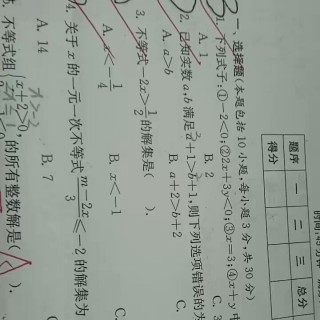 时间:45分钟
题序 一 二 三 总分
得分
一、选择题(本题包括10小题,每小题3分,共30分)
1. 下列式子:①-2<0;②2x+3y<0;③x=3;④x+y中
A. 1 B. 2 C. 3
2. 已知实数a,b满足a+1>b+1,则下列选项错误的为
A. a>b B. a+2>b+2 C.
3. 不等式-2x>1/2的解集是( ).
A. x<-1/4 B. x<-1 C.
4. 关于x的一元一次不等式(m-2x)/3≤-2的解集为
A. 14 B. 7
5. 不等式组{x+2>0, 的所有整数解是( ).
x>-2